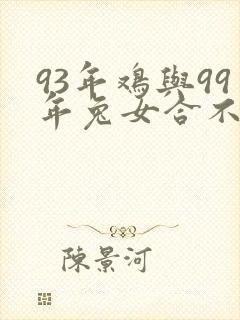 93年鸡與99
年兔女合不
陳景河